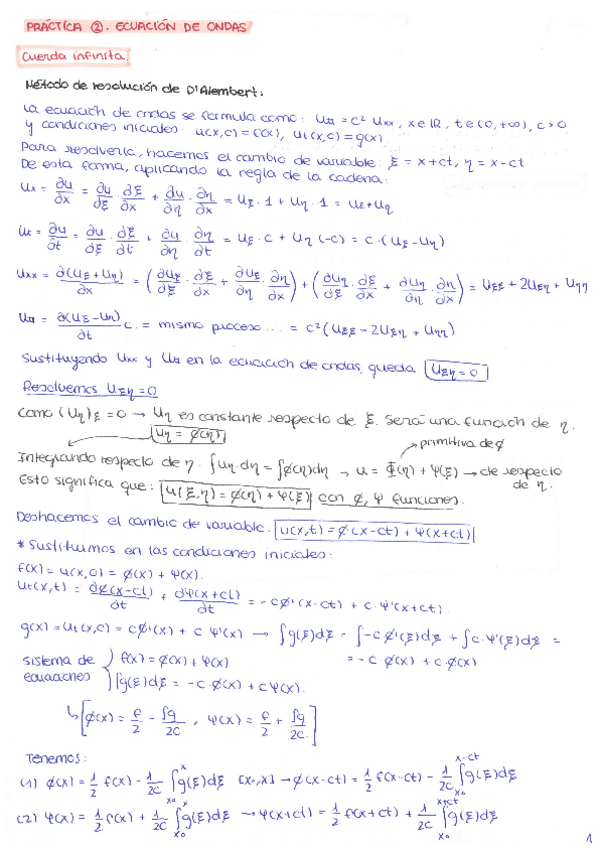 PRÁCTICA ②. ECUACIÓN DE ONDAS
Cuerda infinita.
Método de resolución de D'Alembert.
La ecuación de ondas se formula como: utt = c² uxx, x∈ℝ, t∈(0,+∞), c>0
y condiciones iniciales: u(x,0) = f(x), ut(x,0) = g(x)
Para resolverla, hacemos el cambio de variable: ξ = x+ct, η = x-ct
De esta forma, aplicando la regla de la cadena:
ux = ∂u/∂x = ∂u/∂ξ · ∂ξ/∂x + ∂u/∂η · ∂η/∂x = uξ · 1 + uη · 1 = uξ + uη
ut = ∂u/∂t = ∂u/∂ξ · ∂ξ/∂t + ∂u/∂η · ∂η/∂t = uξ · c + uη (-c) = c · (uξ - uη)
uxx = ∂(uξ + uη)/∂x = (∂uξ/∂ξ · ∂ξ/∂x + ∂uξ/∂η · ∂η/∂x) + (∂uη/∂ξ · ∂ξ/∂x + ∂uη/∂η · ∂η/∂x) = uξξ + 2uξη + uηη
utt = ∂(uξ - uη)/∂t c = mismo proceso ... = c² (uξξ - 2uξη + uηη)
Sustituyendo uxx y utt en la ecuación de ondas, queda uξη = 0
Resolvemos uξη = 0
Como (uη)ξ = 0 → uη es constante respecto de ξ. Será una función de η.
uη = φ(η)
primitiva de φ
Integrando respecto de η. ∫uη dη = ∫φ(η)dη → u = Φ(η) + Ψ(ξ) → cte respecto
de η.
Esto significa que: u(ξ,η) = φ(η) + Ψ(ξ) con φ, Ψ funciones.
Deshacemos el cambio de variable. u(x,t) = φ(x-ct) + Ψ(x+ct)
* Sustituimos en las condiciones iniciales:
f(x) = u(x,0) = φ(x) + Ψ(x).
ut(x,t) = ∂φ(x-ct)/∂t + ∂Ψ(x+ct)/∂t = -cφ'(x-ct) + c·Ψ'(x+ct).
g(x) = ut(x,0) = cφ'(x) + c Ψ'(x) → ∫g(ξ)dξ = ∫-cφ'(ξ)dξ + ∫c·Ψ'(ξ)dξ =
= -c φ(x) + c·φ(x)
sistema de ecuaciones
f(x) = φ(x) + Ψ(x)
∫g(ξ)dξ = -c·φ(x) + cΨ(x).
[φ(x) = f/2 - ∫g/2c , Ψ(x) = f/2 + ∫g/2c]
Tenemos:
(1) φ(x) = 1/2 f(x) - 1/2c ∫x0^x g(ξ)dξ [x0,x] → φ(x-ct) = 1/2 f(x-ct) - 1/2c ∫x0^x-ct g(ξ)dξ
(2) Ψ(x) = 1/2 f(x) + 1/2c ∫x0^x g(ξ)dξ → Ψ(x+ct) = 1/2 f(x+ct) + 1/2c ∫x0^x+ct g(ξ)dξ
1